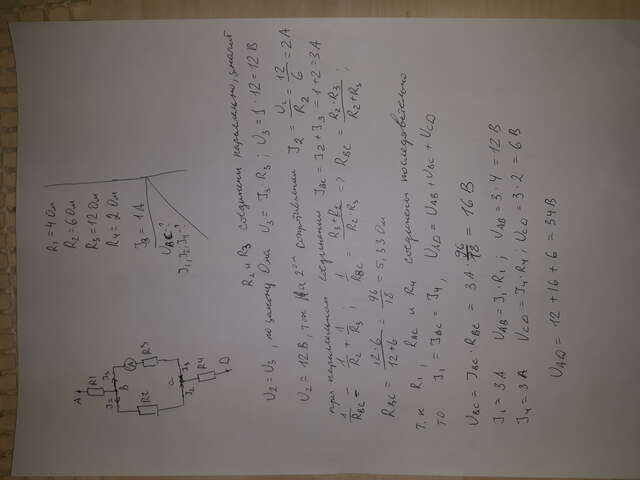 R1 = 4 Ом
R2 = 6 Ом
R3 = 12 Ом
R4 = 2 Ом
I3 = 1A
UBC ?
I1, I2, I4 - ?
A
R1
I2
I3
B
A
R2
R3
C
I2
I3
R4
D
R2 и R3 соединены параллельно, значит
U2 = U3, по закону Ома U3 = I3 R3 ; U3 = 1 · 12 = 12 В
U2 = 12 В, ток на 2ом сопротивлении I2 = U2/R2 = 12/6 = 2A
при параллельном соединении IBC = I2 + I3 = 1 + 2 = 3A
1/RBC = 1/R2 + 1/R3 ; 1/RBC = R3 + R2/R2 R3 => RBC = R2 · R3/R2 + R3 ;
RBC = 12 · 6/12 + 6 = 96/18 = 5,33 Ом
т.к R1, RBC и R4 соединены последовательно
то I1 = IBC = I4, UAD = UAB + UBC + UCD
UBC = IBC · RBC = 3A · 96/18 = 16 В
I1 = 3A UAB = I1 · R1 ; UAB = 3 · 4 = 12 В
I4 = 3A UCD = I4 · R4 ; UCD = 3 · 2 = 6 В
UAD = 12 + 16 + 6 = 34 В